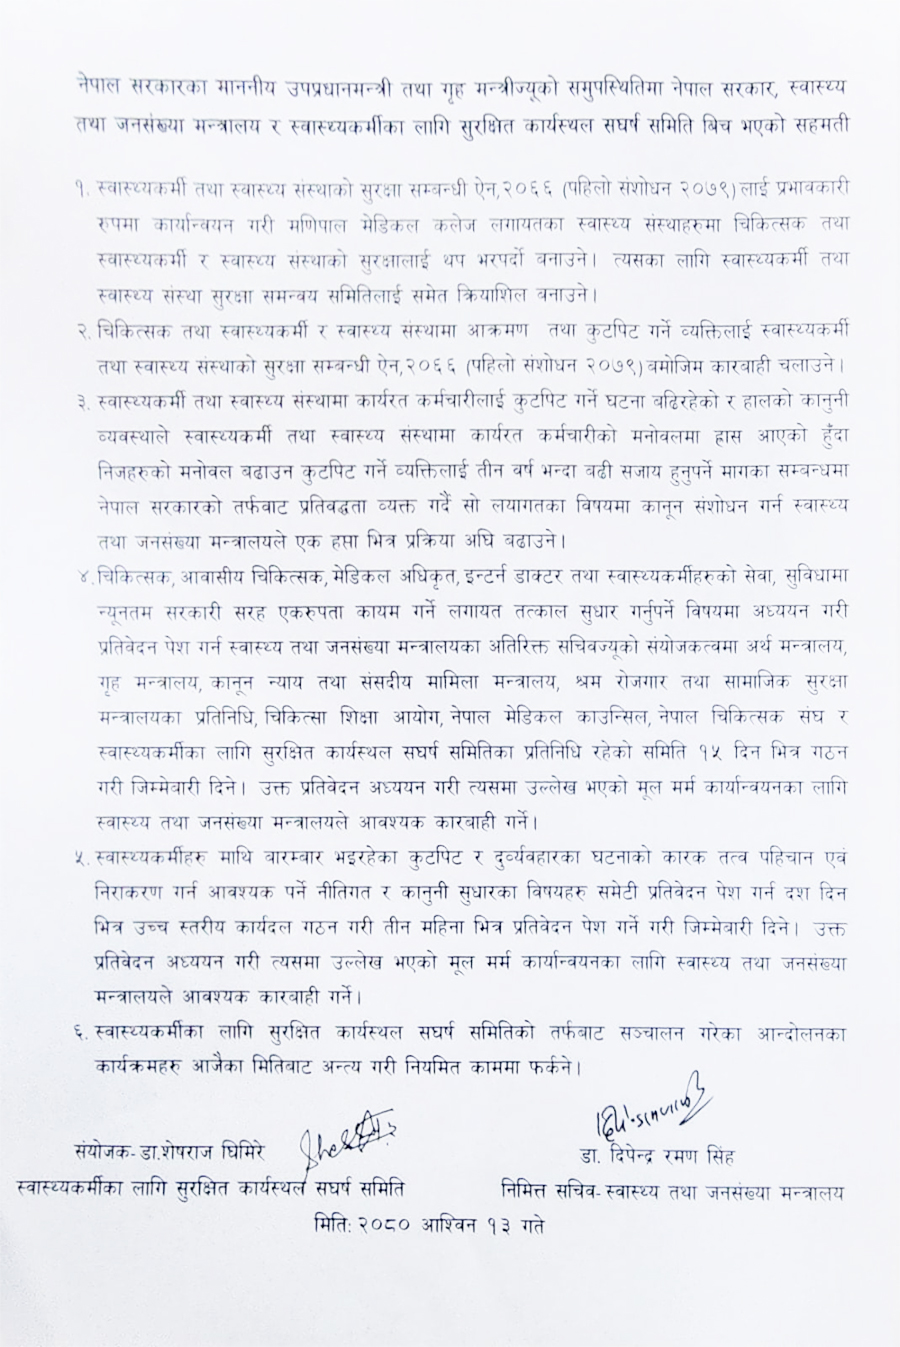 नेपाल सरकारका माननीय उपप्रधानमन्त्री तथा गृह मन्त्रीज्यूको समुपस्थितिमा नेपाल सरकार, स्वास्थ्य
तथा जनसंख्या मन्त्रालय र स्वास्थ्यकर्मीका लागि सुरक्षित कार्यस्थल सघर्ष समिति बिच भएको सहमती
१. स्वास्थ्यकर्मी तथा स्वास्थ्य संस्थाको सुरक्षा सम्बन्धी ऐन,२०६६ (पहिलो संशोधन २०७९)लाई प्रभावकारी
रुपमा कार्यान्वयन गरी मणिपाल मेडिकल कलेज लगायतका स्वास्थ्य संस्थाहरुमा चिकित्सक तथा
स्वास्थ्यकर्मी र स्वास्थ्य संस्थाको सुरक्षालाई थप भरपर्दो बनाउने। त्यसका लागि स्वास्थ्यकर्मी तथा
स्वास्थ्य संस्था सुरक्षा समन्वय समितिलाई समेत क्रियाशिल बनाउने।
२. चिकित्सक तथा स्वास्थ्यकर्मी र स्वास्थ्य संस्थामा आक्रमण तथा कुटपिट गर्ने व्यक्तिलाई स्वास्थ्यकर्मी
तथा स्वास्थ्य संस्थाको सुरक्षा सम्बन्धी ऐन,२०६६ (पहिलो संशोधन २०७९)बमोजिम कारबाही चलाउने।
३. स्वास्थ्यकर्मी तथा स्वास्थ्य संस्थामा कार्यरत कर्मचारीलाई कुटपिट गर्ने घटना बढिरहेको र हालको कानुनी
व्यवस्थाले स्वास्थ्यकर्मी तथा स्वास्थ्य संस्थामा कार्यरत कर्मचारीको मनोवलमा ह्रास आएको हुँदा
निजहरुको मनोवल बढाउन कुटपिट गर्ने व्यक्तिलाई तीन वर्ष भन्दा बढी सजाय हुनुपर्ने मागका सम्बन्धमा
नेपाल सरकारको तर्फबाट प्रतिवद्धता व्यक्त गर्दै सो लयागतका विषयमा कानून संशोधन गर्न स्वास्थ्य
तथा जनसंख्या मन्त्रालयले एक हप्ता भित्र प्रक्रिया अघि बढाउने।
४. चिकित्सक, आवासीय चिकित्सक, मेडिकल अधिकृत, इन्टर्न डाक्टर तथा स्वास्थ्यकर्मीहरुको सेवा, सुविधामा
न्यूनतम सरकारी सरह एकरुपता कायम गर्ने लगायत तत्काल सुधार गर्नुपर्ने विषयमा अध्ययन गरी
प्रतिवेदन पेश गर्न स्वास्थ्य तथा जनसंख्या मन्त्रालयका अतिरिक्त सचिवज्यूको संयोजकत्वमा अर्थ मन्त्रालय,
गृह मन्त्रालय, कानून न्याय तथा संसदीय मामिला मन्त्रालय, श्रम रोजगार तथा सामाजिक सुरक्षा
मन्त्रालयका प्रतिनिधि, चिकित्सा शिक्षा आयोग, नेपाल मेडिकल काउन्सिल, नेपाल चिकित्सक संघ र
स्वास्थ्यकर्मीका लागि सुरक्षित कार्यस्थल सघर्ष समितिका प्रतिनिधि रहेको समिति १५ दिन भित्र गठन
गरी जिम्मेबारी दिने। उक्त प्रतिवेदन अध्ययन गरी त्यसमा उल्लेख भएको मूल मर्म कार्यान्वयनका लागि
स्वास्थ्य तथा जनसंख्या मन्त्रालयले आवश्यक कारबाही गर्ने।
५. स्वास्थ्यकर्मीहरु माथि बारम्बार भइरहेका कुटपिट र दुर्व्यवहारका घटनाको कारक तत्व पहिचान एवं
निराकरण गर्न आवश्यक पर्ने नीतिगत र कानुनी सुधारका विषयहरु समेटी प्रतिवेदन पेश गर्न दश दिन
भित्र उच्च स्तरीय कार्यदल गठन गरी तीन महिना भित्र प्रतिवेदन पेश गर्ने गरी जिम्मेबारी दिने। उक्त
प्रतिवेदन अध्ययन गरी त्यसमा उल्लेख भएको मूल मर्म कार्यान्वयनका लागि स्वास्थ्य तथा जनसंख्या
मन्त्रालयले आवश्यक कारबाही गर्ने।
६. स्वास्थ्यकर्मीका लागि सुरक्षित कार्यस्थल सघर्ष समितिको तर्फबाट सञ्चालन गरेका आन्दोलनका
कार्यक्रमहरु आजैका मितिबाट अन्त्य गरी नियमित काममा फर्कने।
संयोजक- डा.शेषराज घिमिरे
डा. दिपेन्द्र रमण सिंह
स्वास्थ्यकर्मीका लागि सुरक्षित कार्यस्थल सघर्ष समिति
निमित्त सचिव- स्वास्थ्य तथा जनसंख्या मन्त्रालय
मिति: २०८० आश्विन १३ गते